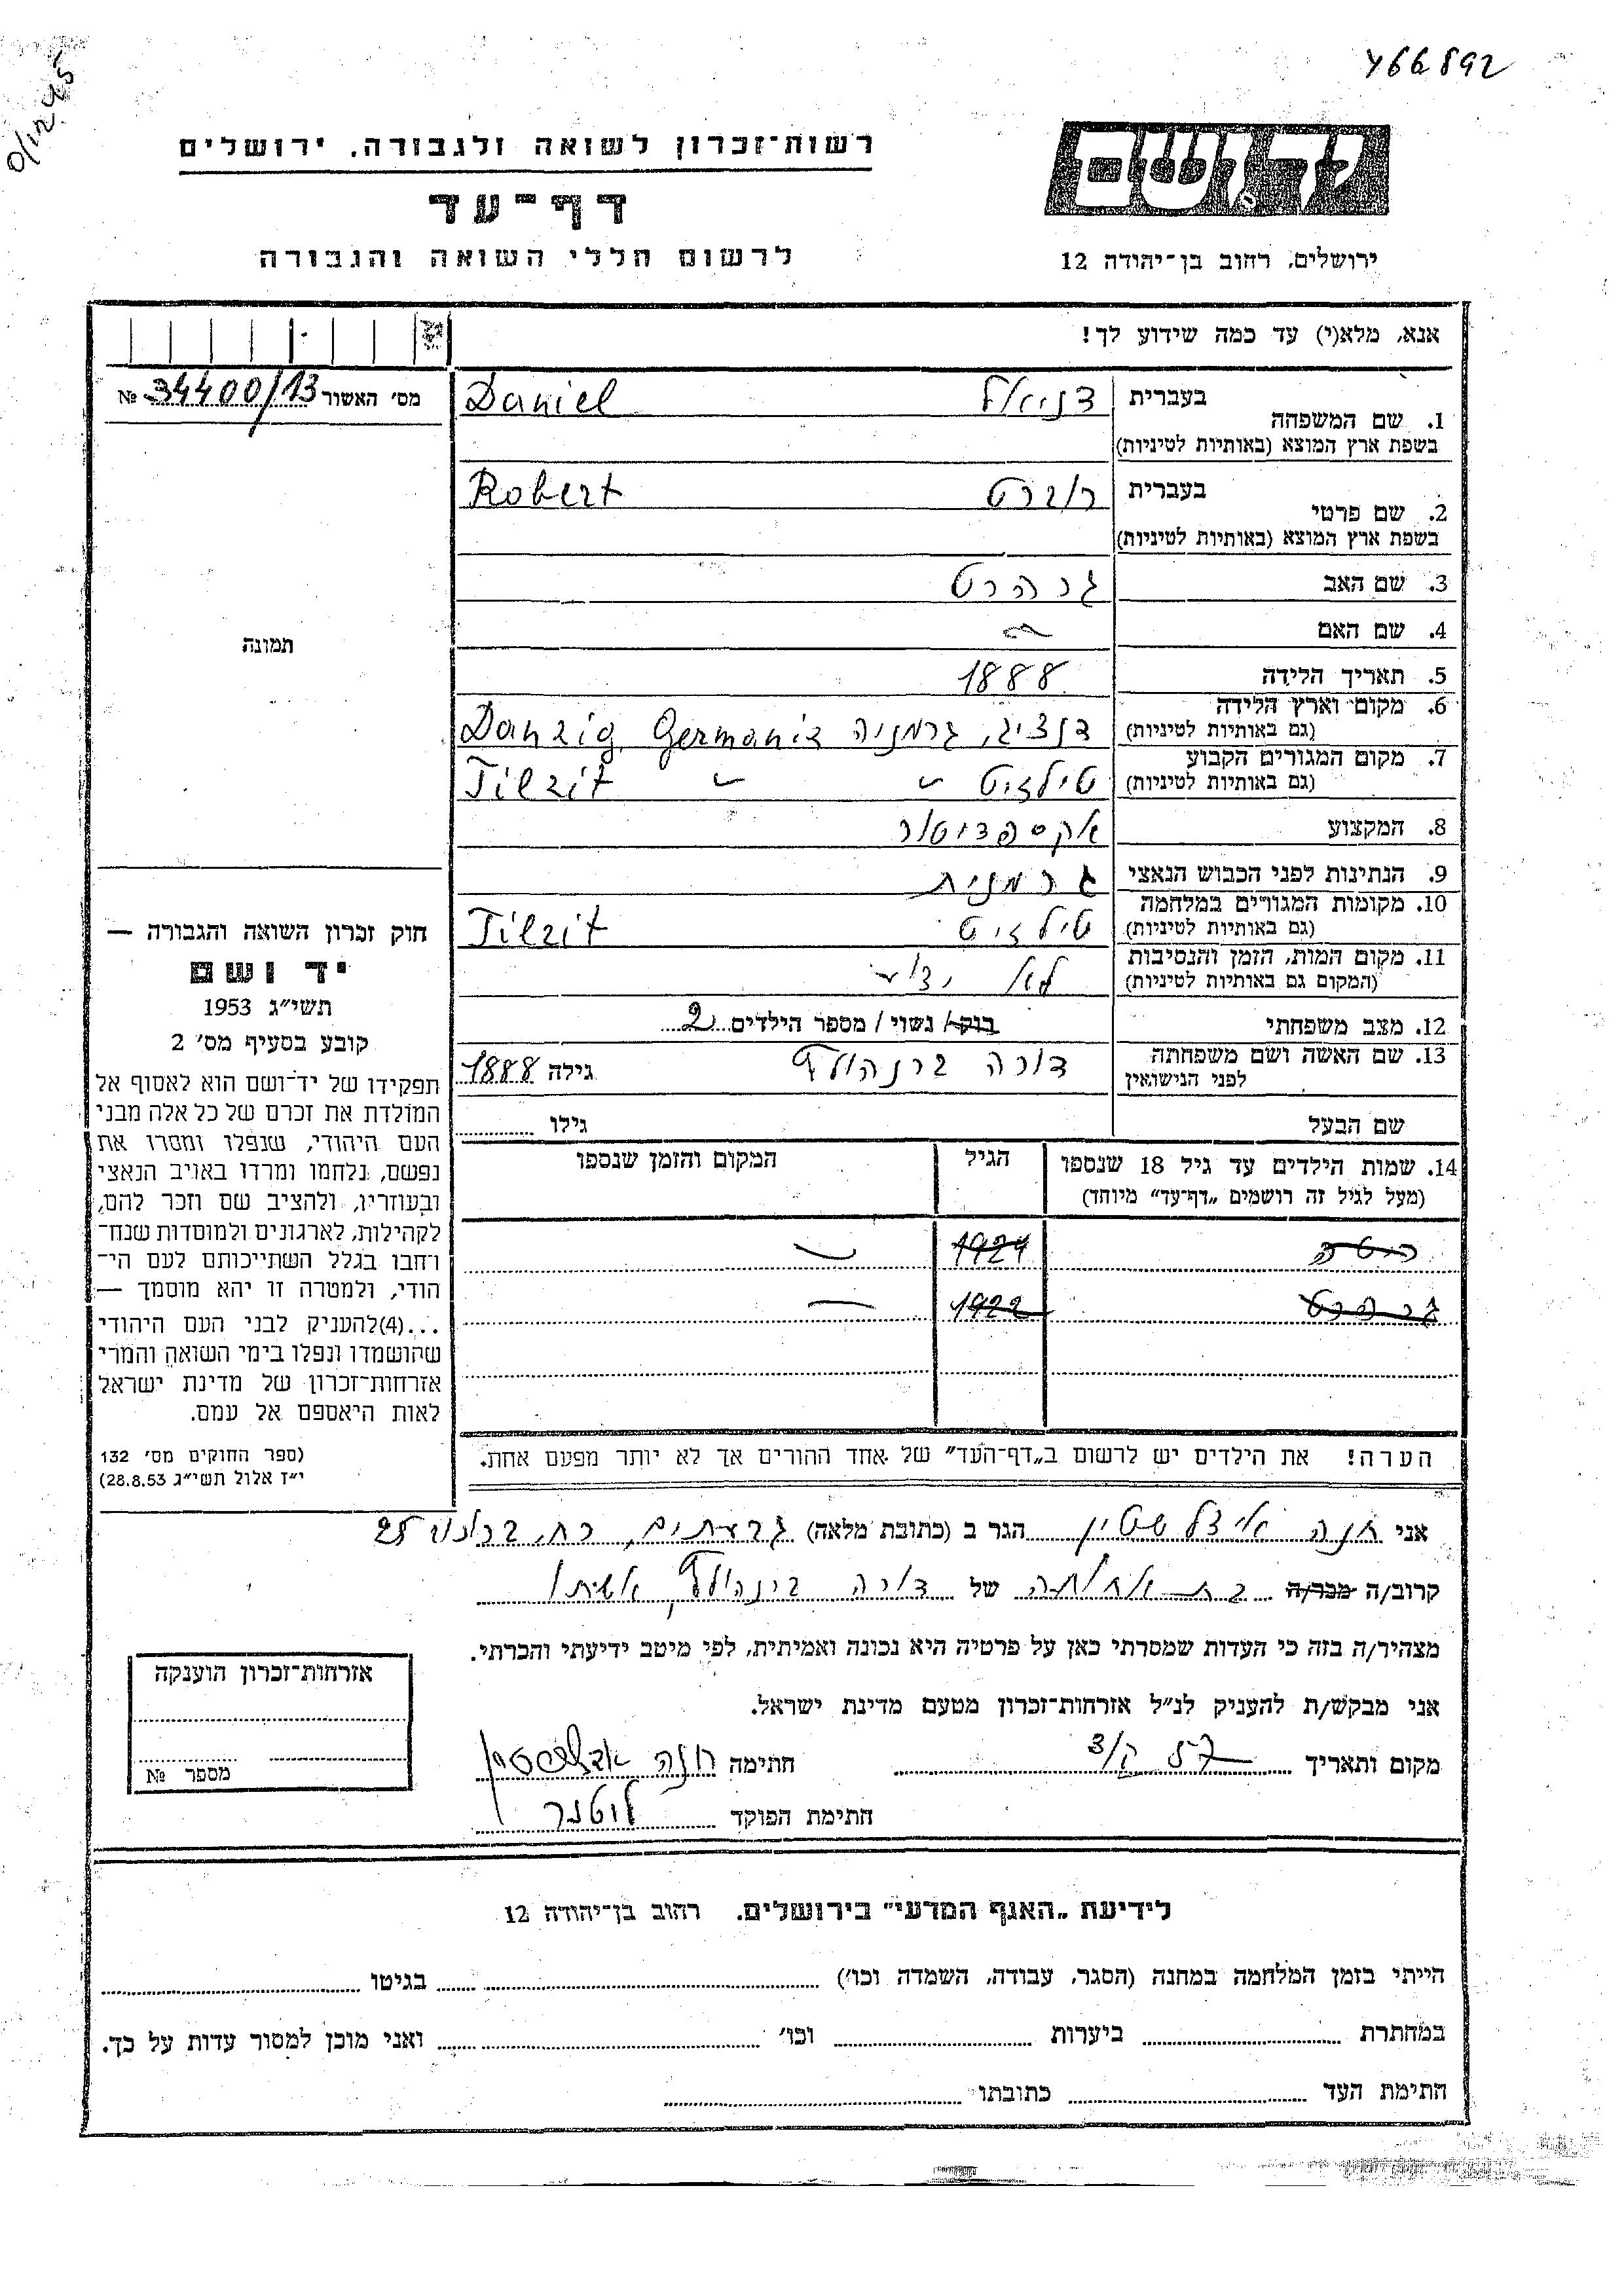 466892
יד ושם
ירושלים, רחוב בן־יהודה 12
רשות־זכרון לשואה ולגבורה, ירושלים
דף־עד
לרשום חללי השואה והגבורה
אנא, מלא(י) עד כמה שידוע לך!
מס' האשור 34400/13 №
1. שם המשפחה בעברית דניאל Daniel
בשפת ארץ המוצא (באותיות לטיניות)
2. שם פרטי בעברית רוברט Robert
בשפת ארץ המוצא (באותיות לטיניות)
3. שם האב גרהרט
4. שם האם
5. תאריך הלידה 1888
6. מקום וארץ הלידה
(גם באותיות לטיניות) דנציג, גרמניה Danzig, Germania
7. מקום המגורים הקבוע
(גם באותיות לטיניות) טילזיט Tilzit
8. המקצוע אקספדיטור
9. הנתינות לפני הכבוש הנאצי גרמנית
10. מקומות המגורים במלחמה
(גם באותיות לטיניות) טילזיט Tilzit
11. מקום המות, הזמן והנסיבות
(המקום גם באותיות לטיניות) לא ידוע
12. מצב משפחתי רווק/ נשוי / מספר הילדים 2
13. שם האשה ושם משפחתה
לפני הנישואין דורה ברנהולץ גילה 1888
שם הבעל גילו
14. שמות הילדים עד גיל 18 שנספו הגיל המקום והזמן שנספו
(מעל לגיל זה רושמים „דף־עד” מיוחד)
1924
גרהרט 1922
הערה! את הילדים יש לרשום ב„דף־העד” של אחד ההורים אך לא יותר מפעם אחת.
תמונה
חוק זכרון השואה והגבורה —
יד ושם
תשי״ג 1953
קובע בסעיף מס' 2
תפקידו של יד־ושם הוא לאסוף אל
המולדת את זכרם של כל אלה מבני
העם היהודי, שנפלו ומסרו את
נפשם, נלחמו ומרדו באויב הנאצי
ובעוזריו, ולהציב שם וזכר להם,
לקהילות, לארגונים ולמוסדות שנח־
רחבו בגלל השתייכותם לעם הי־
הודי, ולמטרה זו יהא מוסמך —
...(4)להעניק לבני העם היהודי
שהושמדו ונפלו בימי השואה והמרי
אזרחות־זכרון של מדינת ישראל
לאות היאספם אל עמם.
(ספר החוקים מס' 132
י״ז אלול תשי״ג 28.8.53)
אני חנה אידלשטיין הגר ב (כתובת מלאה) גבעתיים, רח. 25
קרוב/ה מכר/ה בת אחותה של דורה אשתו
מצהיר/ה בזה כי העדות שמסרתי כאן על פרטיה היא נכונה ואמיתית, לפי מיטב ידיעתי והכרתי.
אני מבקש/ת להעניק לנ״ל אזרחות־זכרון מטעם מדינת ישראל.
מקום ותאריך חתימה חנה
חתימת הפוקד
אזרחות־זכרון הוענקה
מספר №
לידיעת „האגף המדעי” בירושלים, רחוב בן־יהודה 12
הייתי בזמן המלחמה במחנה (הסגר, עבודה, השמדה וכו') בגיטו
במחתרת ביערות וכו' ואני מוכן למסור עדות על כך.
חתימת העד כתובתו